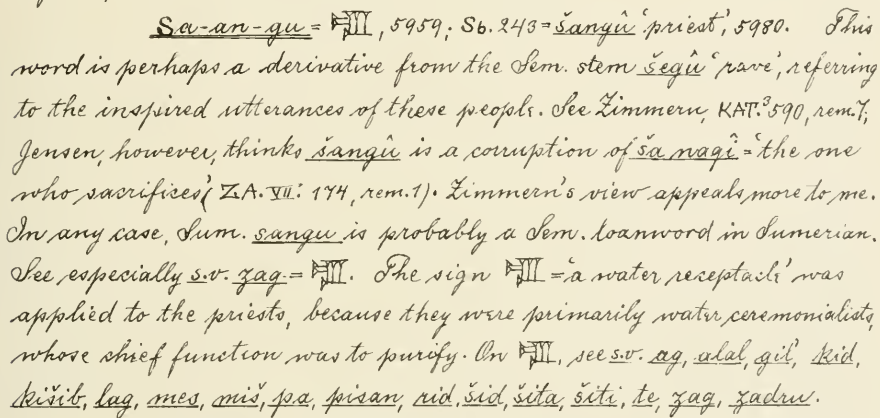 Sa-an-gu = 𒋃, 5959; Sb. 243 = šangû 'priest', 5980. This
word is perhaps a derivative from the Sem. stem šegû 'rave', referring
to the inspired utterances of these people. See Zimmern, KAT.³ 590, rem. 7;
Jensen, however, thinks šangû is a corruption of ša nagî = 'the one
who sacrifices' (ZA. VII: 174, rem. 1). Zimmern's view appeals more to me.
In any case, Sum. sangu is probably a Sem. loanword in Sumerian.
See especially s.v. zag = 𒋃. The sign 𒋃 = 'a water receptacle' was
applied to the priests, because they were primarily water ceremonialists,
whose chief function was to purify. On 𒋃, see s.v. ag, alal, gil, kid,
kišib, lag, mes, miš, pa, pisan, rid, šid, šita, šiti, te, zag, zadru.